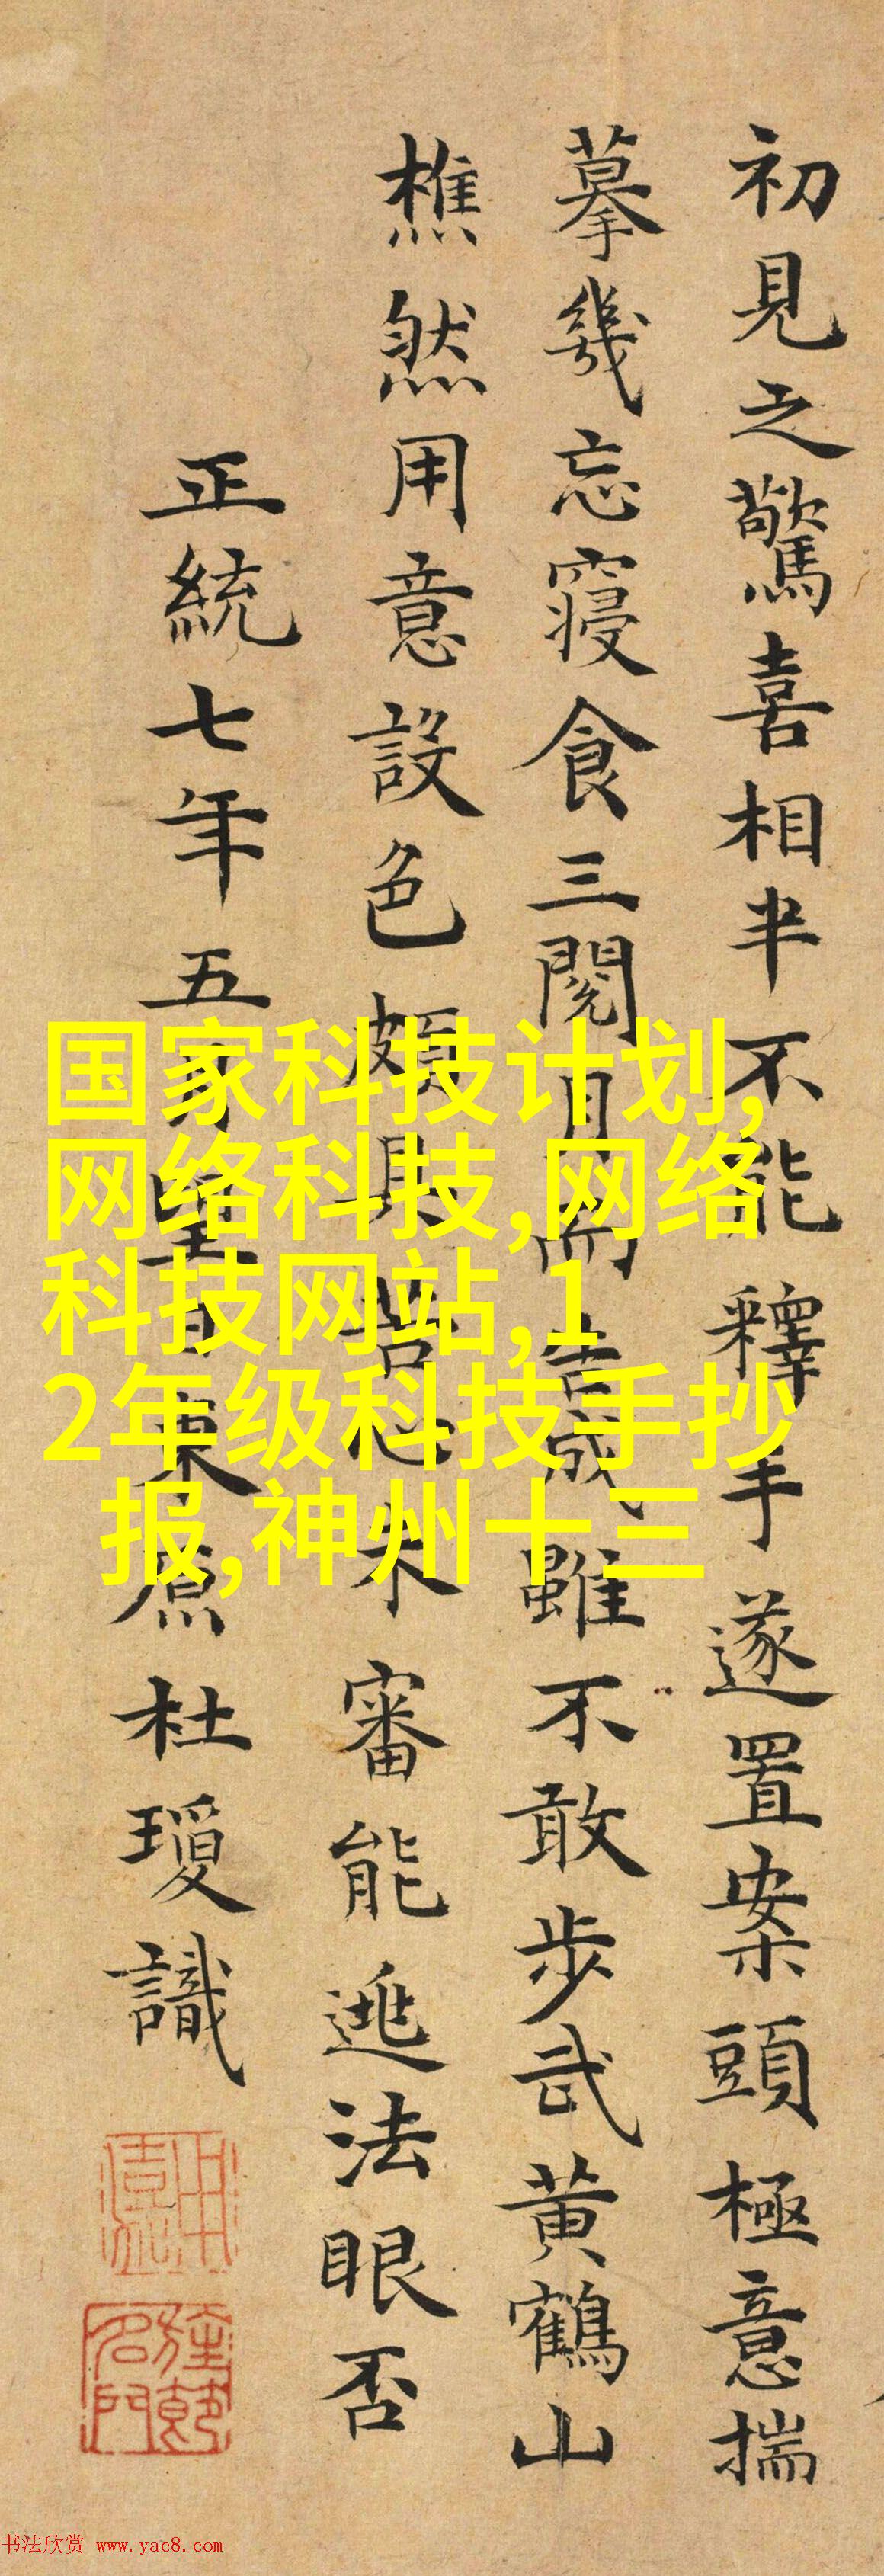 初見之驚喜相半不能釋手遂置案頭極意揣
摹幾忘寢食三閱月而告成雖不敢步武黃鶴山
樵然用意設色頗具苦心未審能逃法眼否
正統七年五月望日東原杜瓊識
国家科技计划,
网络科技,网络
科技网站,1
2年级科技手抄
报,神州十三
书法欣赏 www.yac8.com